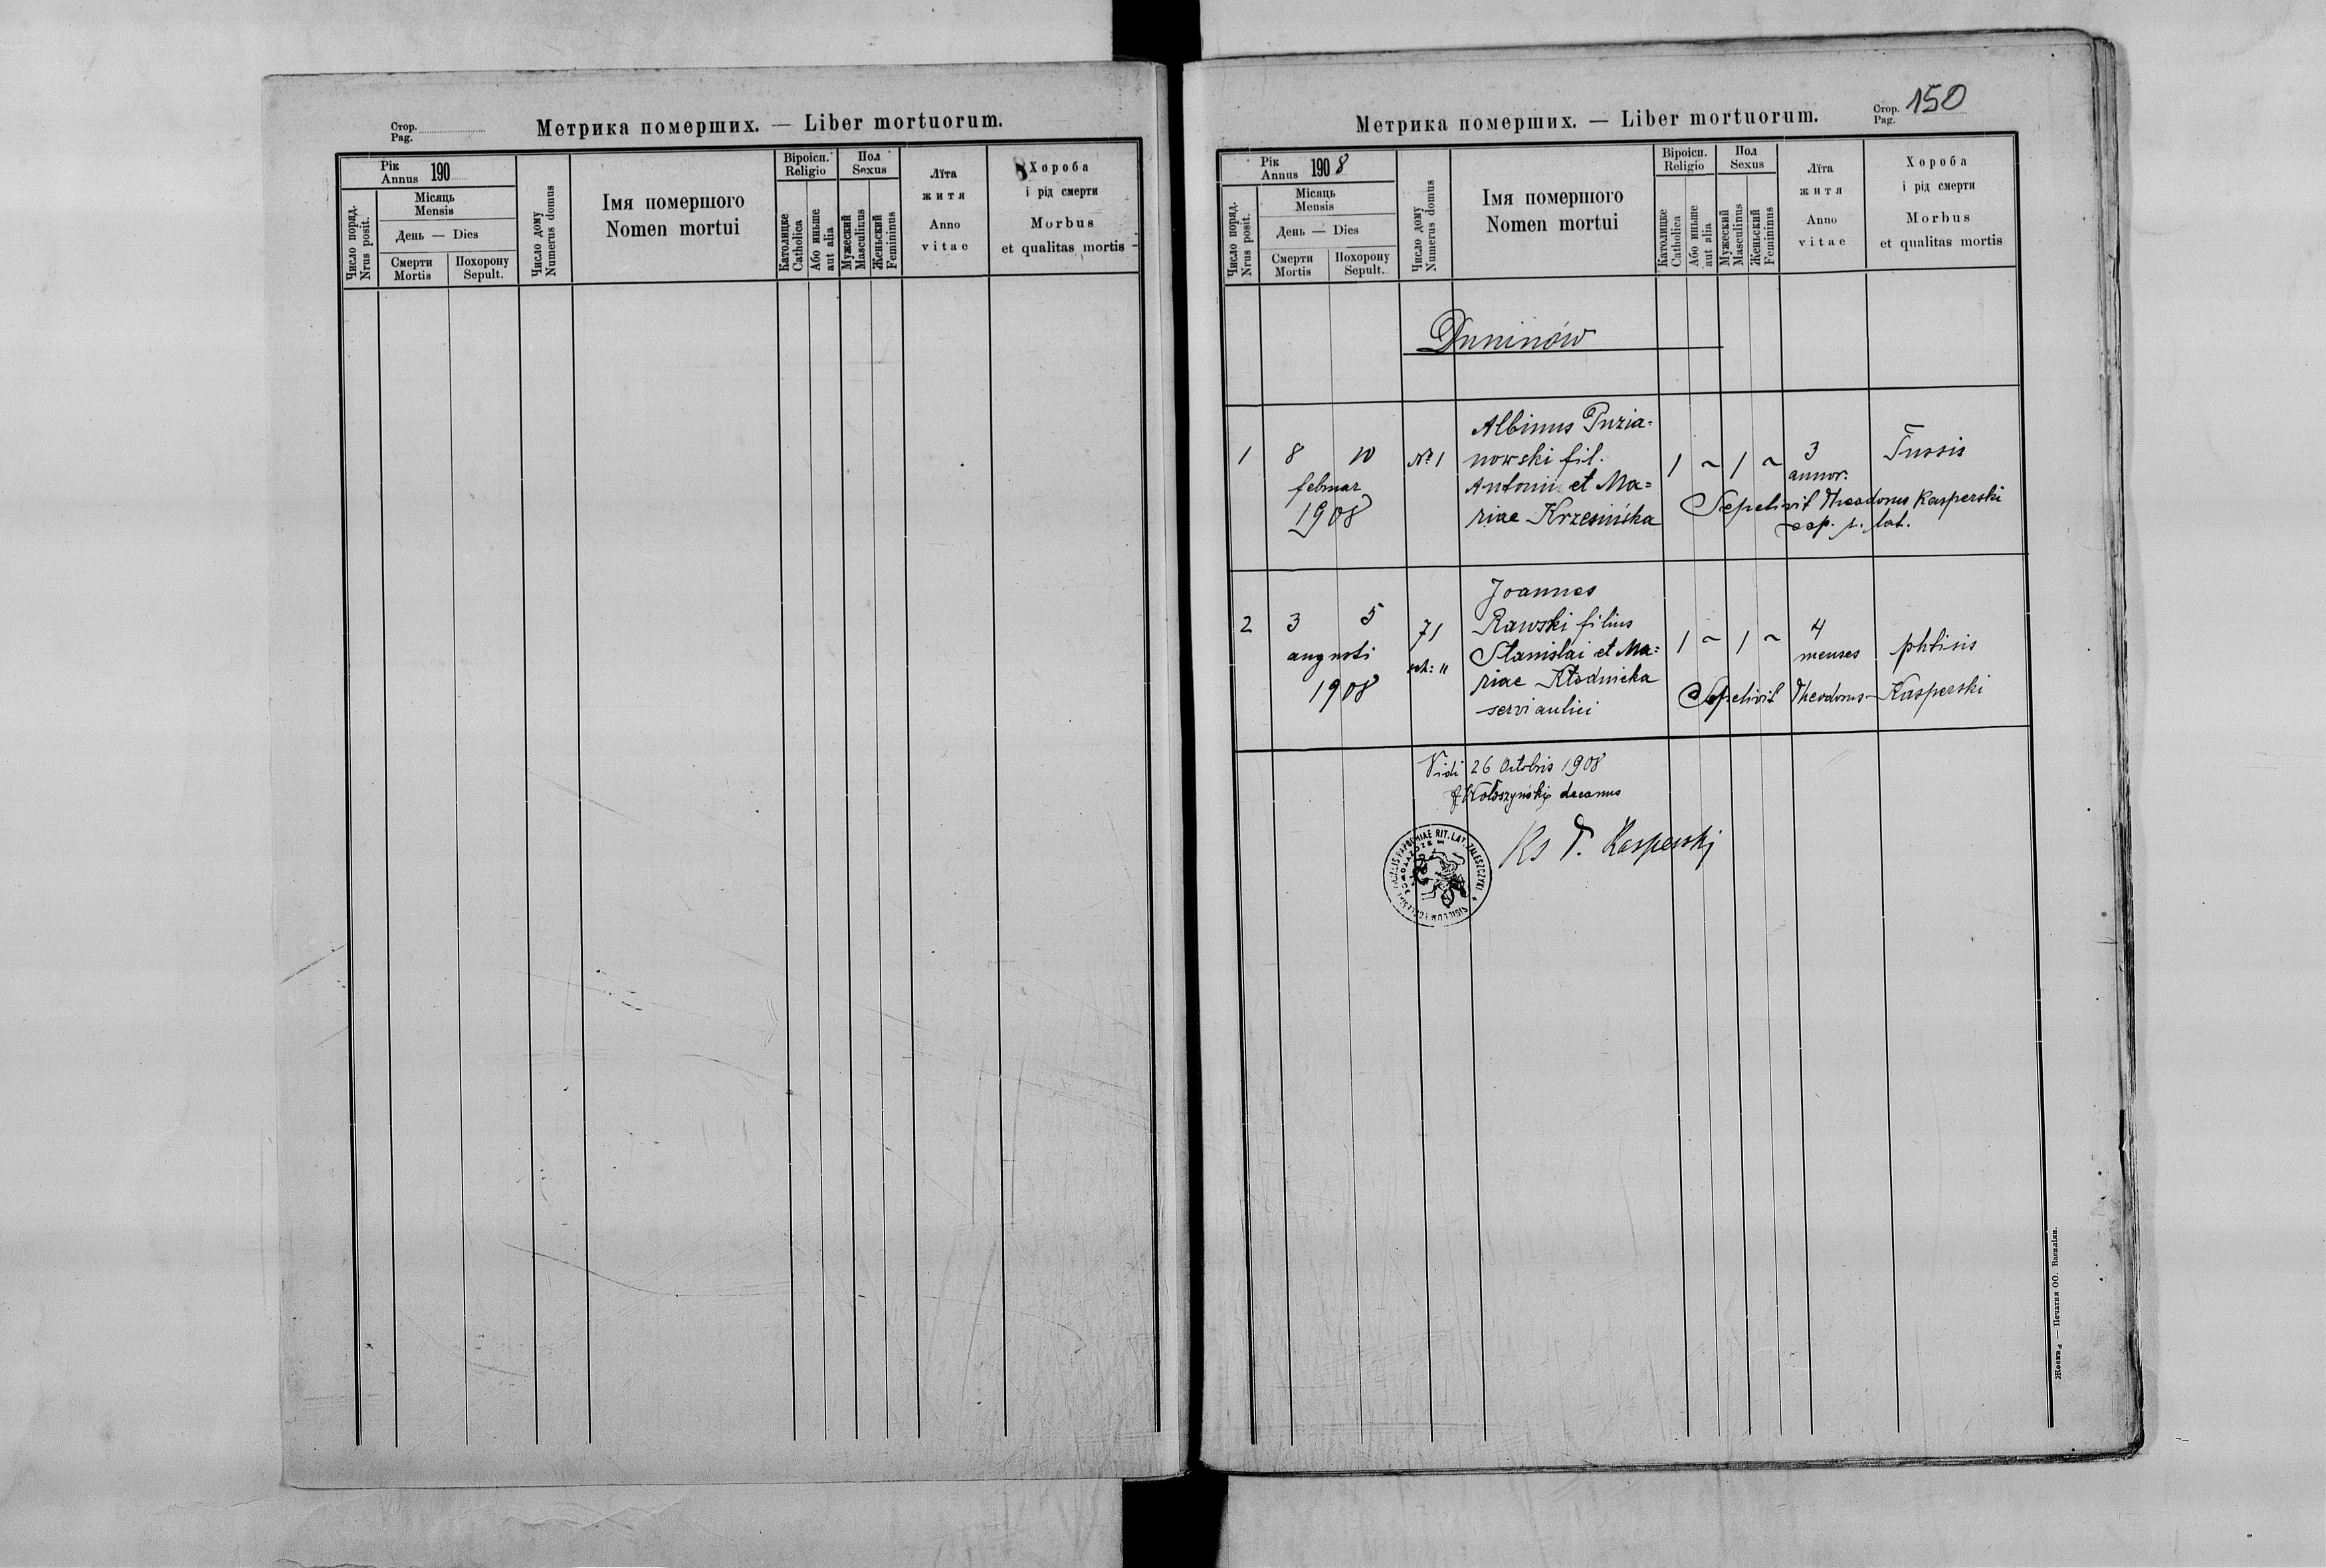 Стор.
Pag.
Метрика померших. — Liber mortuorum.
Рік
Annus 190
Місяць
Mensis
День — Dies
Число поряд.
Nrus posit.
Смерти
Mortis
Похорону
Sepult.
Число дому
Numerus domus
Імя помершого
Nomen mortui
Віроісп.
Religio
Католицке
Catholica
Або иньше
aut alia
Пол
Sexus
Мужеский
Masculinus
Женьский
Femininus
Лїта
житя
Anno
vitae
Хороба
і рід смерти
Morbus
et qualitas mortis
Стор.
Pag. 150
Метрика померших. — Liber mortuorum.
Рік
Annus 1908
Місяць
Mensis
День — Dies
Число поряд.
Nrus posit.
Смерти
Mortis
Похорону
Sepult.
Число дому
Numerus domus
Імя помершого
Nomen mortui
Віроісп.
Religio
Католицке
Catholica
Або иньше
aut alia
Пол
Sexus
Мужеский
Masculinus
Женьский
Femininus
Лїта
житя
Anno
vitae
Хороба
і рід смерти
Morbus
et qualitas mortis
Duninów
Albinus Puzia=
1 8 10 № 1 nowski fil. 1 ~ 1 ~ 3 Tussis
februar Antonii et Ma= annor.
1908 riae Krzesińska
Sepelivit Theodorus Kasperski
exp. r. lat.
Joannes
2 3 5 71 Rawski filius 1 ~ 1 ~ 4 phtisis
augusti Stanislai et Ma= menses
1908 riae Kłodnicka
servi aulici
Sepelivit Theodorus Kasperski
Vidi 26 Octobris 1908
Wołoszyński decanus
Ks T. Kasperski
RIT. LAT. ZALESZCZYKI
Жовква — Печатня ОО. Василіян.